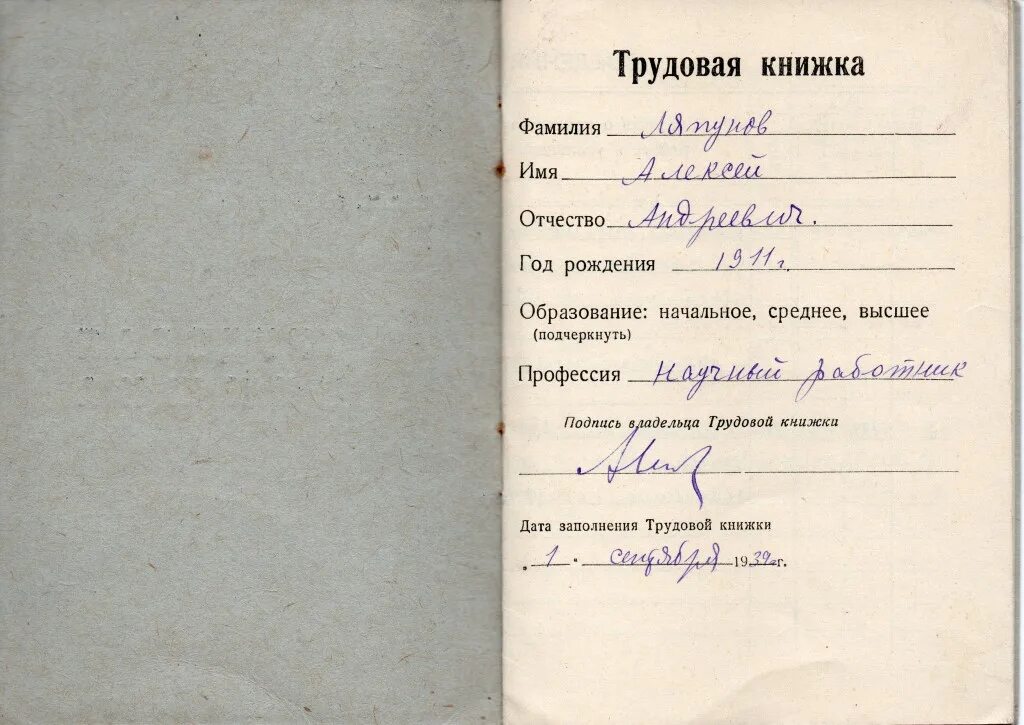 Трудовая книжка
Фамилия Ляпунов
Имя Алексей
Отчество Андреевич.
Год рождения 1911 г.
Образование: начальное, среднее, высшее
(подчеркнуть)
Профессия научный работник
Подпись владельца Трудовой книжки
Дата заполнения Трудовой книжки
„1" сентября 1939 г.